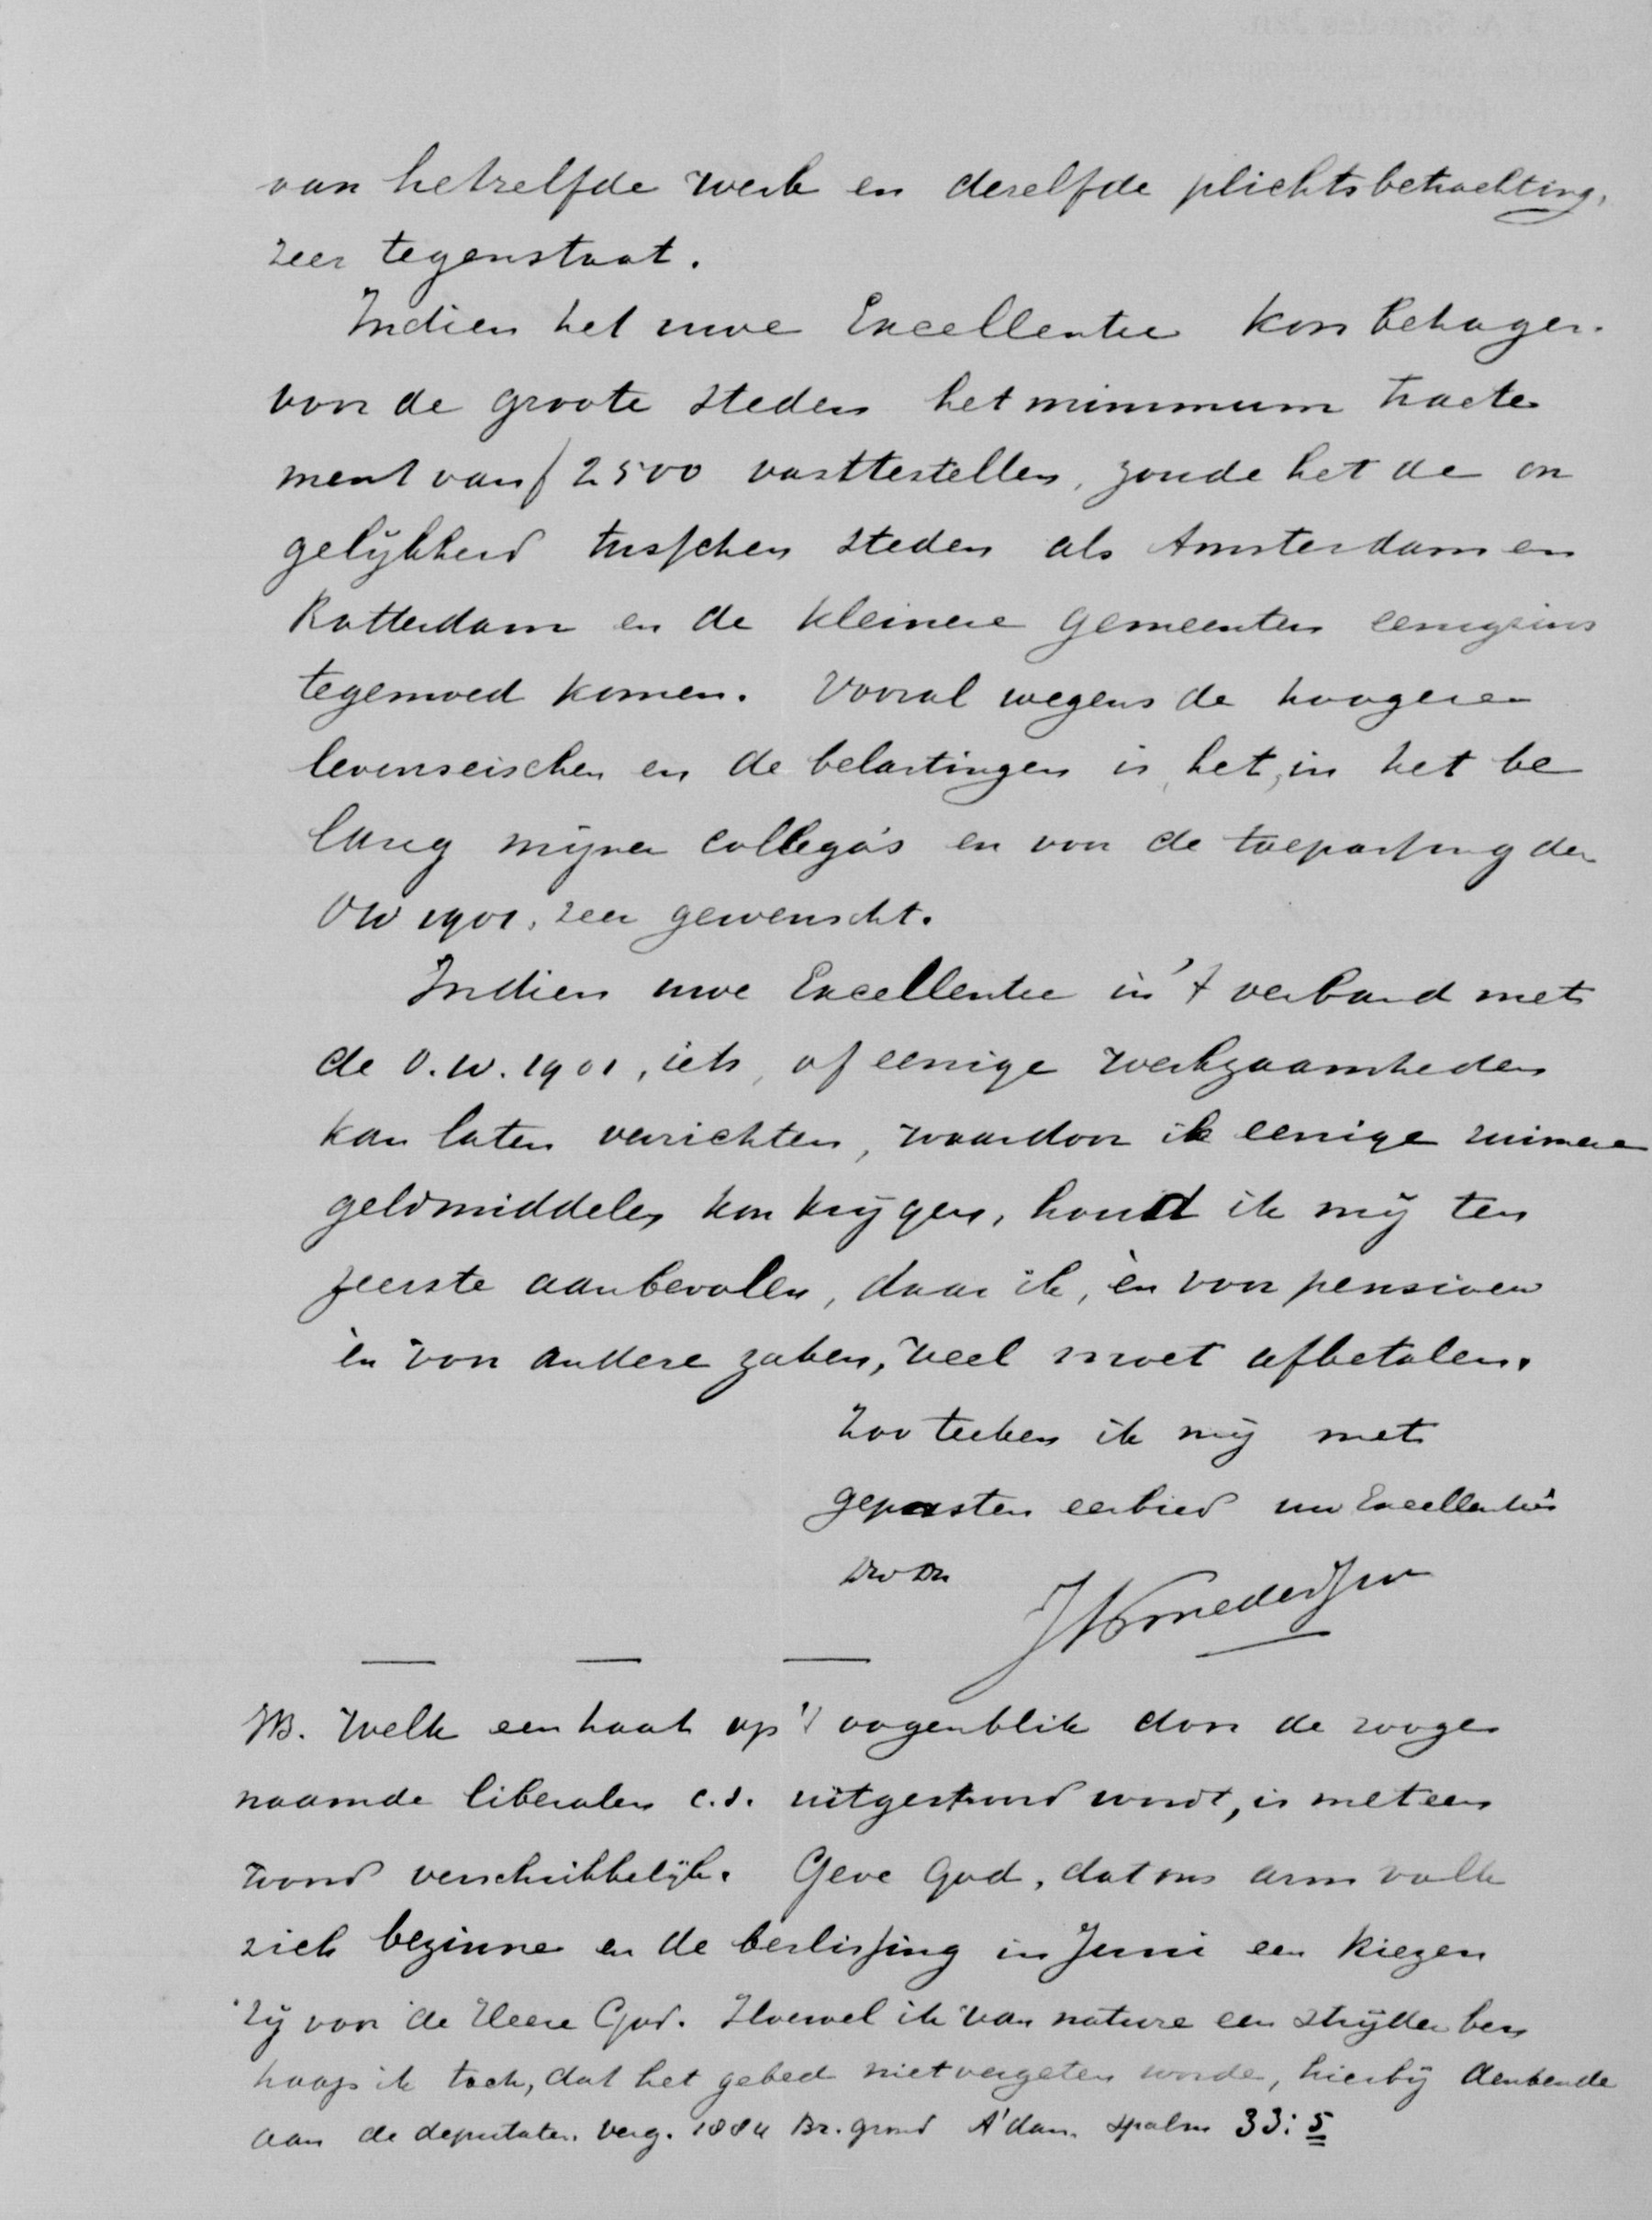 van hetzelfde werk en derelfde plichtsbetrachting,
zeer tegenstaat.
Indien het uwe Excellentie kon behagen.
voor de groote steden het minimum tracte
ment van f 2500 vasttestellen, zoude het de on
gelijkheid tusschen steden als Amsterdam en
Rotterdam en de kleinere gemeenten eenigzins
tegemoed komen. Vooral wegens de hoogere
levenseischen en de belastingen is het, in het be
lang mijner collega's en voor de toepassing der
OW 1901, zeer gewenscht.
Indien uwe Excellentie in 't verband met
de O.W. 1901, iets, of eenige werkzaamheden
kan laten verrichten, waardoor ik eenige ruimere
geldmiddelen kon krijgen, houd ik mij ten
zeerste aanbevolen, daar ik, èn voor pensioen
èn voor andere zaken, veel moet afbetalen.
Zoo teeken ik mij met
gepasten eerbied uw Excellentie's
Dw Dn
NB. Welk een haat op 't oogenblik door de zooge
naamde liberalen c.s. uitgestrooid wordt, is met een
woord verschrikkelijk. Geve God, dat ons arm volk
zich bezinne en de beslissing in Juni een kiezen
zij voor de Heere God. Hoewel ik van nature een strijder ben
hoop ik toch, dat het gebed niet vergeten worde, hierbij denkende
aan de deputaten. verg. Br. grond A'dam. psalm 33:5